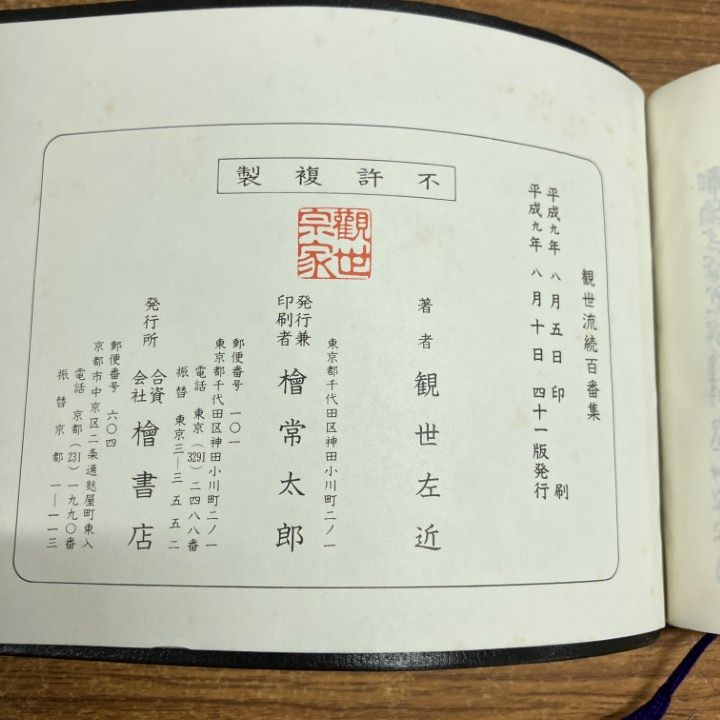 不許複製
観世流続百番集
平成九年 八月五日 印刷
平成九年 八月十日 四十一版発行
觀世宗家
著者 観世左近
東京都千代田区神田小川町二ノ一
発行兼印刷者 檜常太郎
郵便番号 一〇一
東京都千代田区神田小川町二ノ一
電話 東京(3291)二四八八番
振替 東京三―三五五二
発行所 合資会社 檜書店
郵便番号 六〇四
京都市中京区二条通麩屋町東入
電話 京都(231)一九九〇番
振替京都 一―一一三